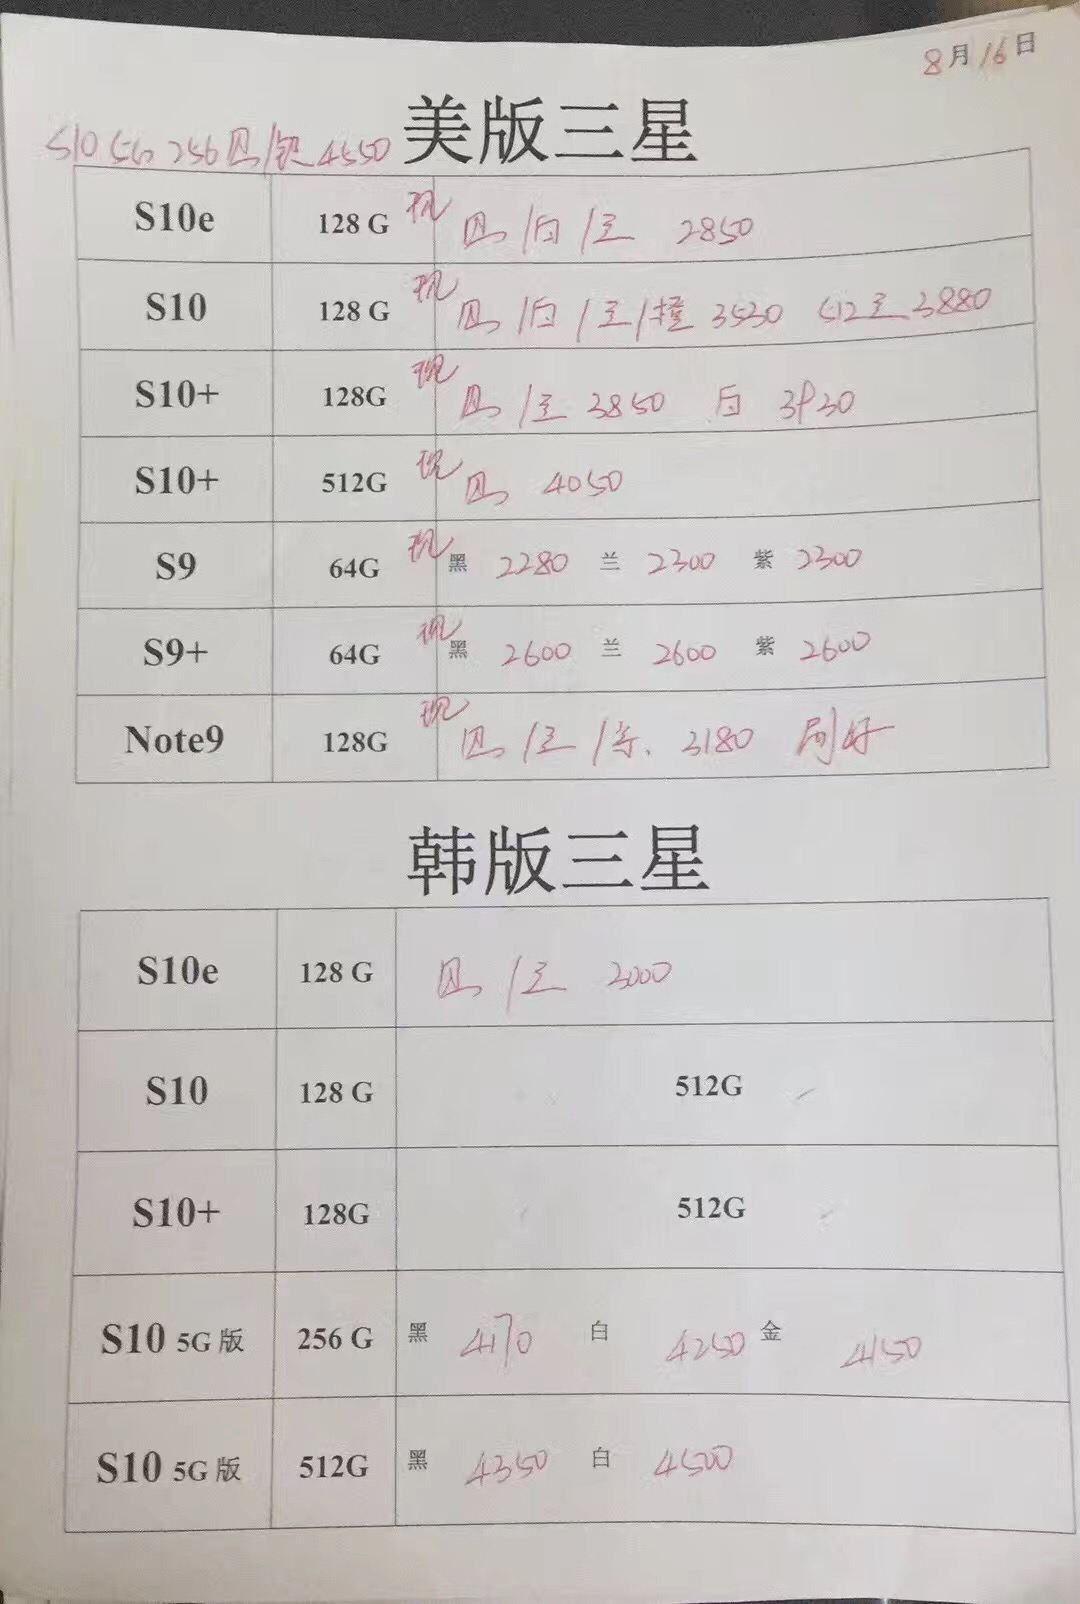 8月16日
美版三星
S10 5G 256 黑/银 4550
S10e 128 G 现 黑/白/兰 2850
S10 128 G 现 黑/白/兰/橙 3530 512兰3880
S10+ 128G 现 黑/兰 3850 白 3930
S10+ 512G 现 黑 4050
S9 64G 现 黑 2280 兰 2300 紫 2300
S9+ 64G 现 黑 2600 兰 2600 紫 2600
Note9 128G 现 黑/兰/ 3180 刷好
韩版三星
S10e 128 G 黑/兰 3000
S10 128 G 512G
S10+ 128G 512G
S10 5G 版 256 G 黑 4170 白 4250 金 4150
S10 5G 版 512G 黑 4350 白 4500